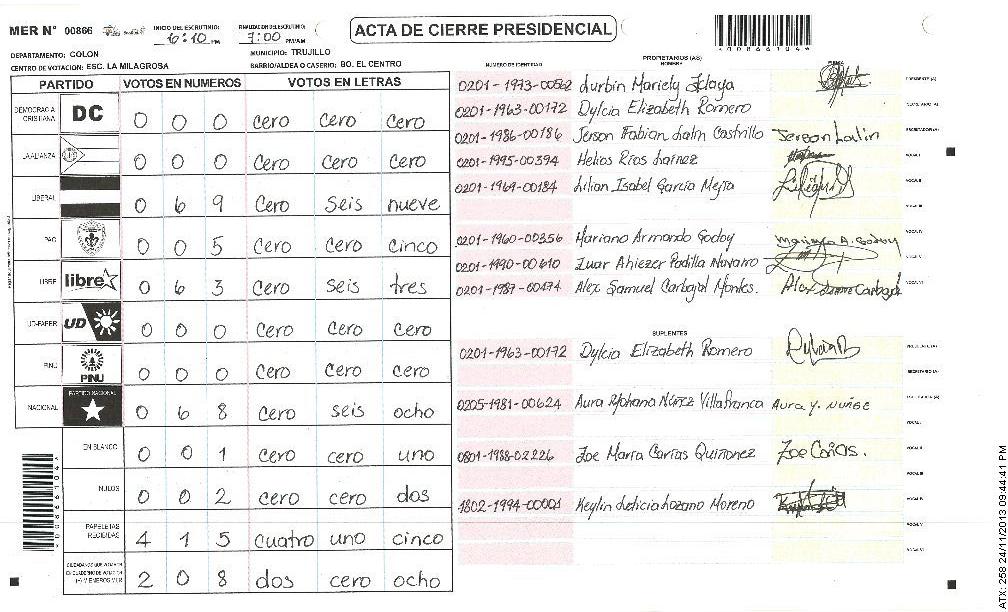 MER N° 00866
INICIO DEL ESCRUTINIO: 6:10 PM
FINALIZACION DEL ESCRUTINIO: 7:00 PM/AM
ACTA DE CIERRE PRESIDENCIAL
DEPARTAMENTO: COLON
MUNICIPIO: TRUJILLO
CENTRO DE VOTACION: ESC. LA MILAGROSA
BARRIO/ALDEA O CASERIO: BO. EL CENTRO
PARTIDO VOTOS EN NUMEROS VOTOS EN LETRAS
DEMOCRACIA CRISTIANA DC 0 0 0 cero cero cero
LA ALIANZA 0 0 0 cero cero cero
LIBERAL 0 6 9 cero seis nueve
PAC 0 0 5 cero cero cinco
LIBRE libre 0 6 3 cero seis tres
UD-FAPER UD 0 0 0 cero cero cero
PINU PINU 0 0 0 cero cero cero
NACIONAL PARTIDO NACIONAL 0 6 8 cero seis ocho
EN BLANCO 0 0 1 cero cero uno
NULOS 0 0 2 cero cero dos
PAPELETAS RECIBIDAS 4 1 5 cuatro uno cinco
CIUDADANOS QUE VOTARON 2 0 8 dos cero ocho
PROPIETARIOS (AS)
NUMERO DE IDENTIDAD NOMBRE FIRMA
0201-1973-00562 Mariely PRESIDENTE (A)
0201-1963-00172 Dylcia Elizabeth Romero SECRETARIO (A)
0201-1986-00186 Jerson Fabian Castrillo Jerson ESCRUTADOR (A)
0201-1995-00394 Helios Rios VOCAL I
0201-1969-00184 Lilian Isabel Garcia Mejia VOCAL II
VOCAL III
0201-1960-00356 Mariano Armando Godoy Mariano A. Godoy VOCAL IV
0201-1990-00610 Ahiezer Padilla Navarro VOCAL V
0201-1987-00474 Alex Samuel Carbajal Montes. Alex Carbajal VOCAL VI
SUPLENTES
0201-1963-00172 Dylcia Elizabeth Romero PRESIDENTE (A)
SECRETARIO (A)
0205-1981-00624 Aura Núñez Villafranca Aura Y. Nuñez ESCRUTADOR (A)
VOCAL I
0801-1988-02226 Zoe Maria Carías Quiñonez Zoe Carías. VOCAL II
VOCAL III
1802-1994-00001 Keylin Leticia Lozano Moreno VOCAL IV
VOCAL V
VOCAL VI
ATX: 258 24/11/2013 09:44:41 PM